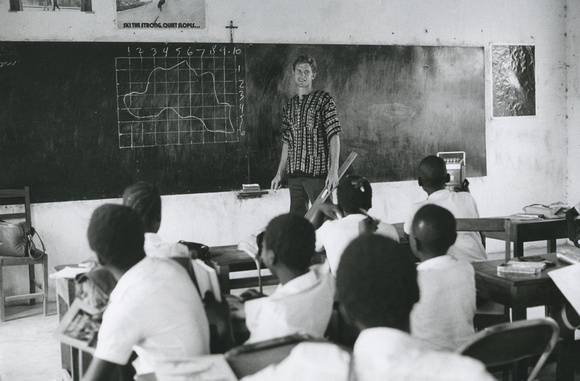 SKI THE STRONG, QUIET SLOPES...
1 2 3 4 5 6 7 8 9 10
1
2
3
4
5
6